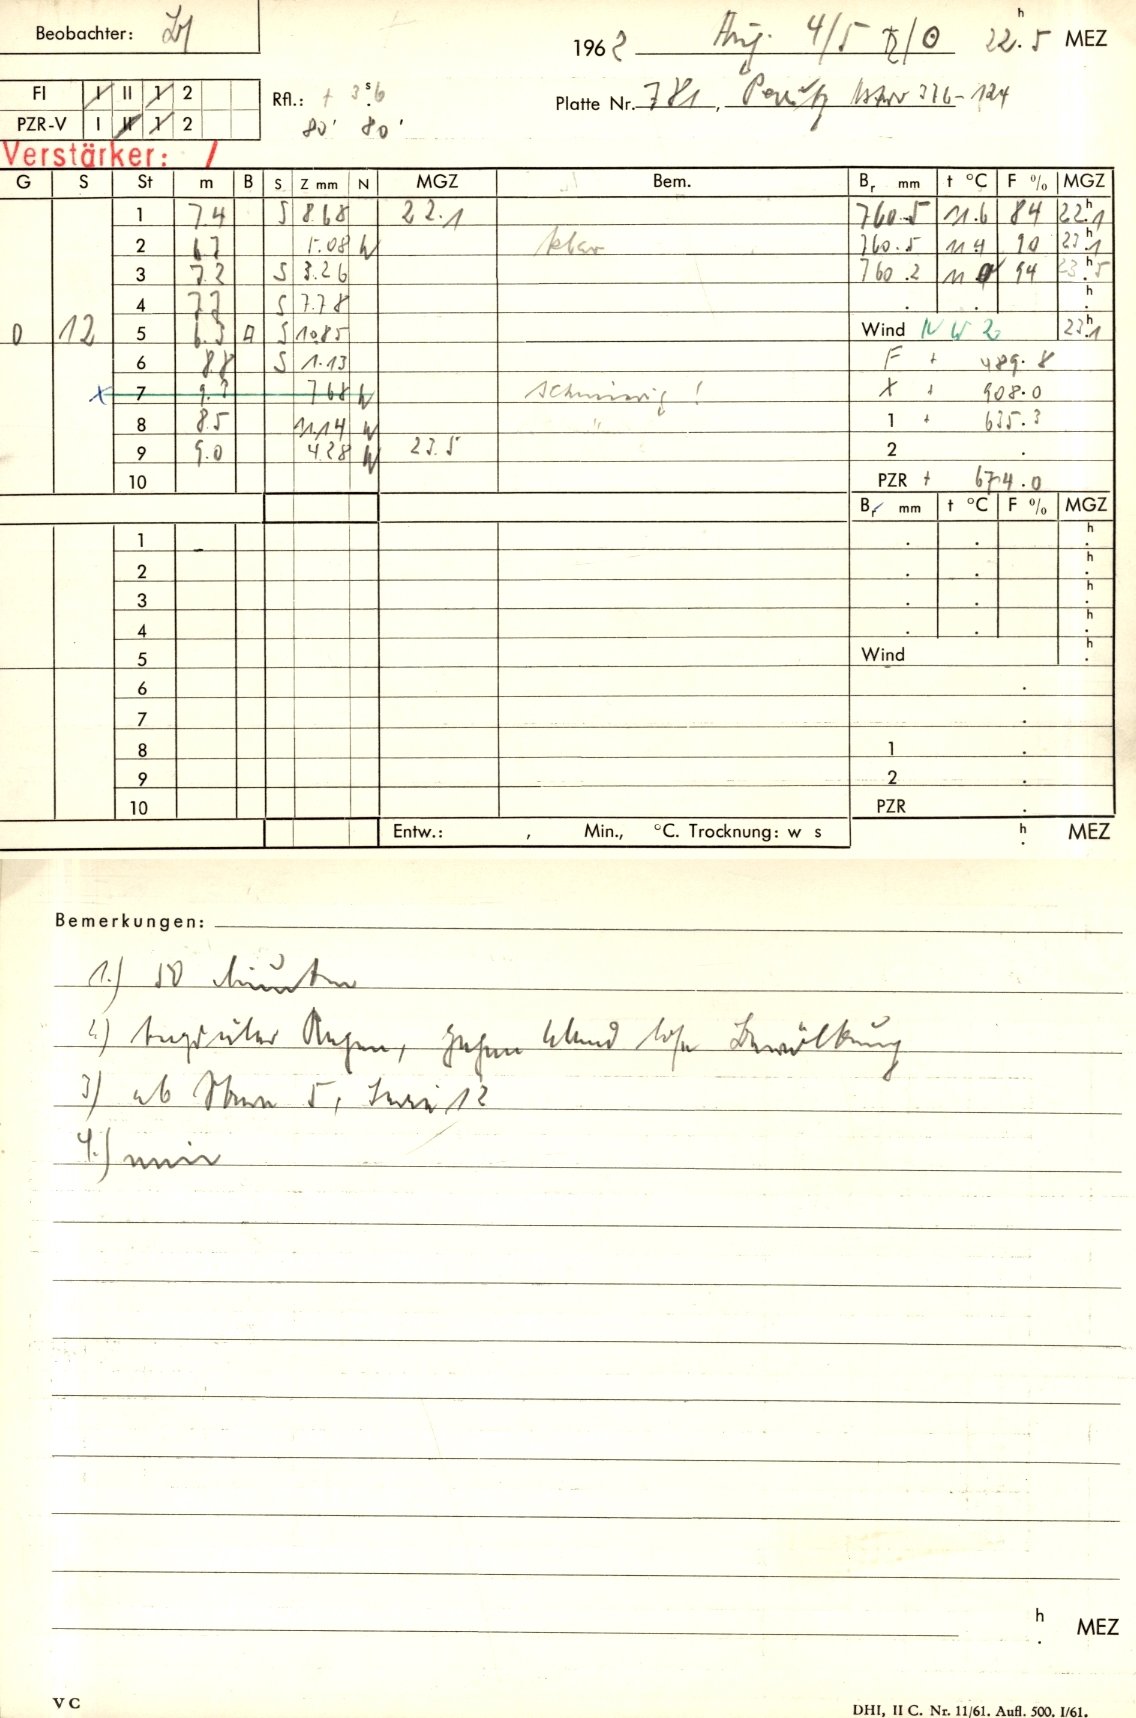 Beobachter:
1962 Aug. 4/5 ♄/☉ 22h.5 MEZ
FI I II 1 2
PZR-V I II 1 2
Rfl.: + 3s.6
80' 80'
Platte Nr. 781, Perutz
Verstärker: /
G S St m B S Z mm N MGZ Bem. Br mm t °C F % MGZ
1 7.4 S 8.68 22.1 760.5 11.6 84 22h.1
2 6.7 5.08 W klar 760.5 11.4 90 23h.1
3 7.2 S 3.26 760.2 11.0 94 23h.5
4 7.7 S 7.78 . . h.
0 12 5 6.3 A S 10.85 Wind NW 2 23h.1
6 8.8 S 1.13 F + 489.8
x 7 9.3 7.68 W schwierig! X + 908.0
8 8.5 11.14 W " 1 + 635.3
9 9.0 4.28 W 23.5 2 .
10 PZR + 674.0
Br mm t °C F % MGZ
1 . . h.
2 . . h.
3 . . h.
4 . . h.
5 Wind h.
6 .
7 .
8 1 .
9 2 .
10 PZR .
Entw.: , Min., °C. Trocknung: w s h. MEZ
Bemerkungen:
1.) 50 Minuten
2.) tagsüber Regen, gegen Abend lose Bewölkung
3) ab Stern 5, Serie 12
4.)
h. MEZ
V C
DHI, II C. Nr. 11/61. Aufl. 500. I/61.